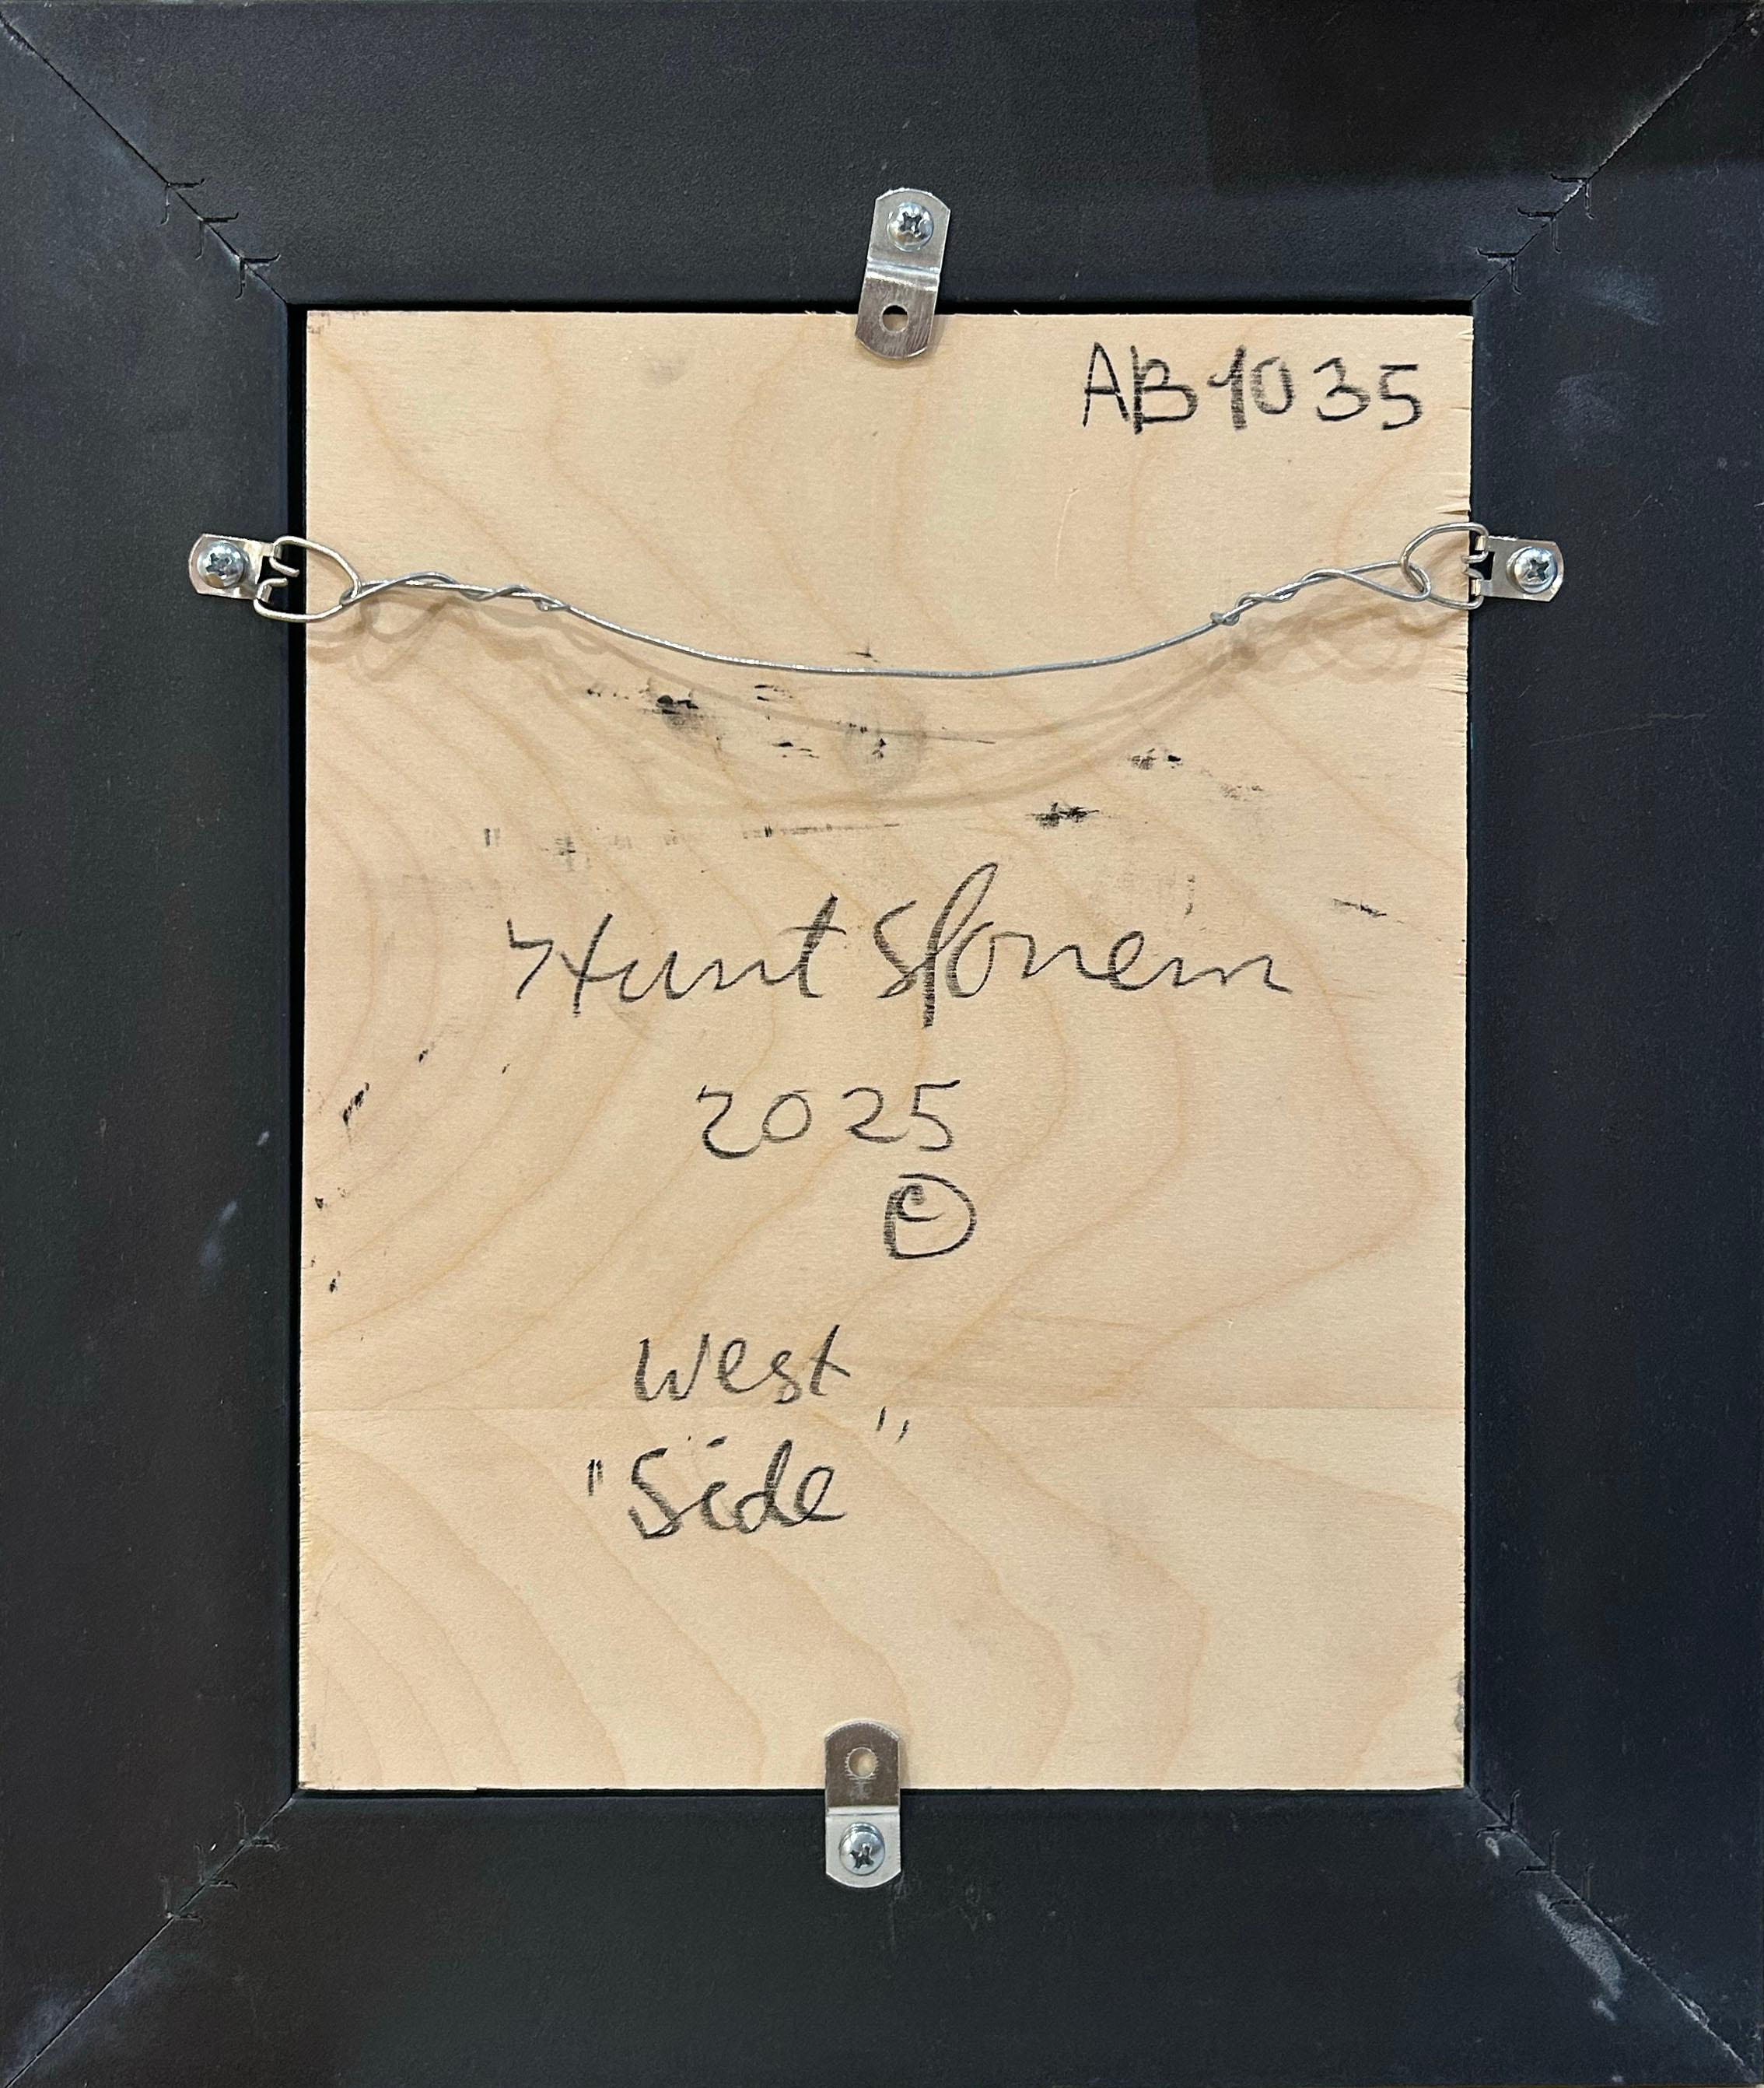 AB1035
Hunt Slonem
2025
©
West
"Side"